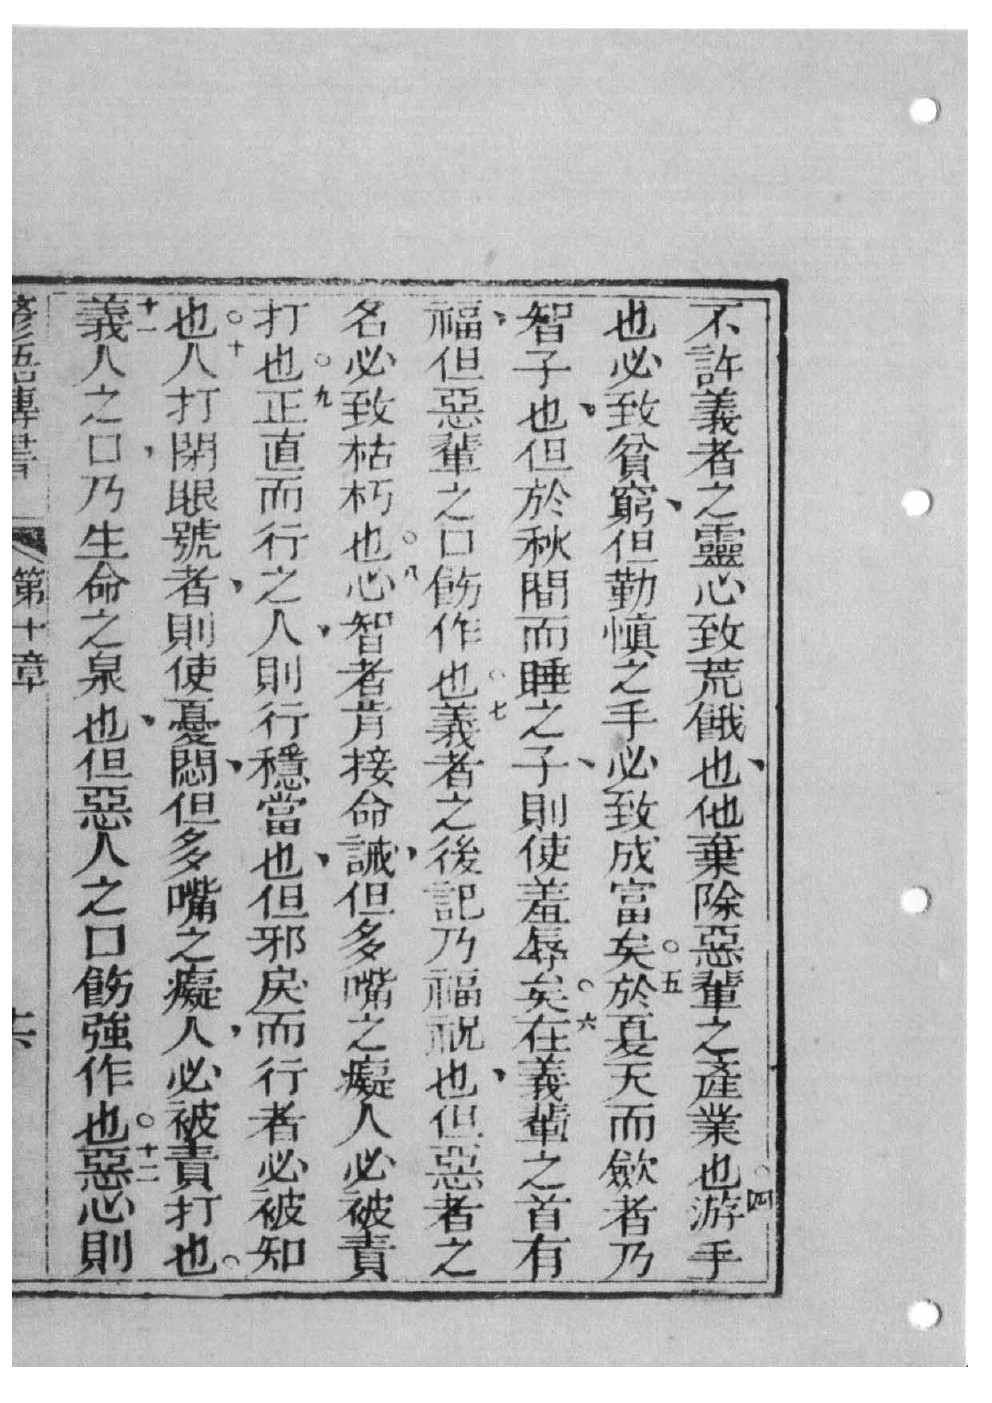 不許義者之靈心致荒餓也、他棄除惡輩之產業也。四游手
也必致貧窮、但勤慎之手必致成富矣。五於夏天而斂者乃
智子也、但於秋間而睡之子、則使羞辱矣。六在義輩之首有
福、但惡輩之口飭作也。七義者之後記乃福祝也、但惡者之
名必致枯朽也。八心智者肯接命誡、但多嘴之癡人必被責
打也。九正直而行之人、則行穩當也、但邪戾而行者必被知
也。十人打閉眼號者、則使憂悶、但多嘴之癡人、必被責打也。
十一義人之口、乃生命之泉也、但惡人之口飭強作也。十二惡心則
諺語傳書 第十章